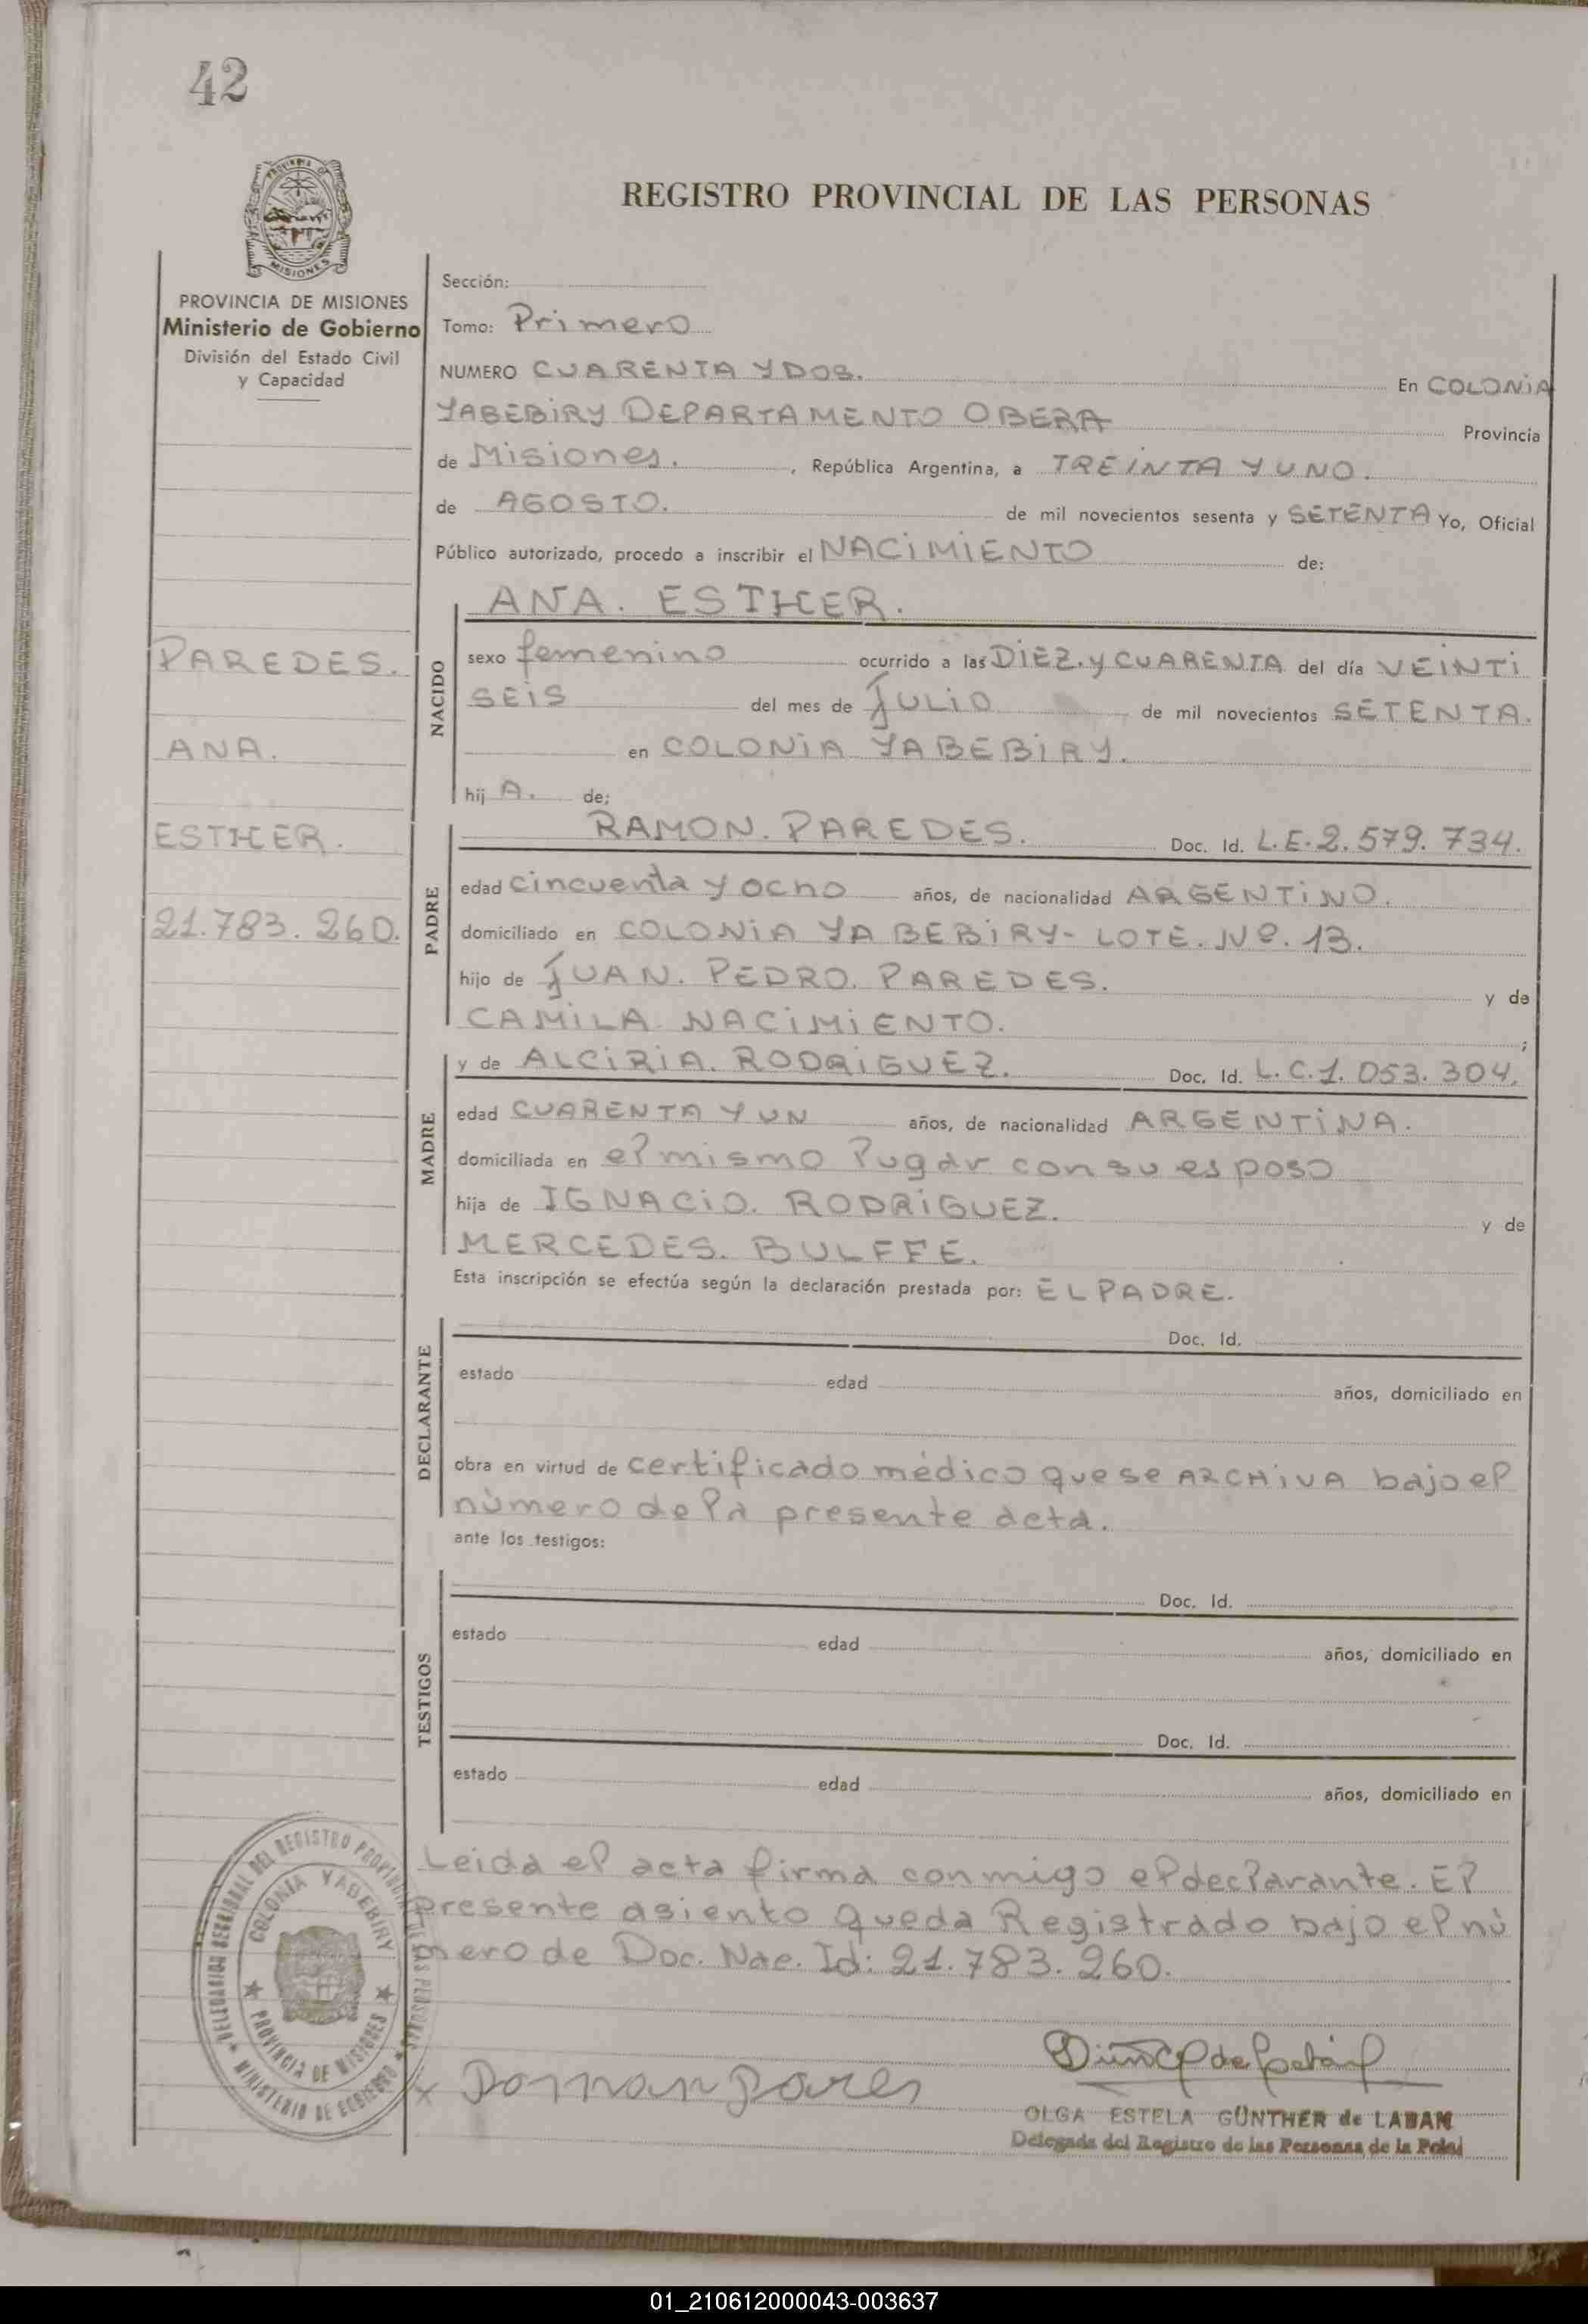 42
REGISTRO PROVINCIAL DE LAS PERSONAS
MISIONES
PROVINCIA DE MISIONES
Ministerio de Gobierno
División del Estado Civil
y Capacidad
PAREDES.
ANA.
ESTHER.
21.783.260.
Sección:
Tomo: Primero
NUMERO CUARENTA Y DOS. En COLONIA
YABEBIRY DEPARTAMENTO OBERA Provincia
de Misiones. , República Argentina, a TREINTA Y UNO.
de AGOSTO. de mil novecientos sesenta y SETENTA Yo, Oficial
Público autorizado, procedo a inscribir el NACIMIENTO de:
NACIDO
ANA. ESTHER.
sexo femenino ocurrido a las DIEZ. y CUARENTA del día VEINTI
SEIS del mes de JULIO de mil novecientos SETENTA.
en COLONIA YABEBIRY.
hij A. de:
PADRE
RAMON. PAREDES. Doc. Id. L.E.2.579.734.
edad cincuenta y ocho años, de nacionalidad ARGENTINO.
domiciliado en COLONIA YABEBIRY- LOTE. Nº. 13.
hijo de JUAN. PEDRO. PAREDES. y de
CAMILA NACIMIENTO. ;
MADRE
y de ALCIRIA. RODRIGUEZ. Doc. Id. L.C.1.053.304.
edad CUARENTA Y UN años, de nacionalidad ARGENTINA.
domiciliada en el mismo lugar con su esposo
hija de IGNACIO. RODRIGUEZ. y de
MERCEDES. BULFFE.
Esta inscripción se efectúa según la declaración prestada por: EL PADRE.
DECLARANTE
Doc. Id.
estado edad años, domiciliado en
obra en virtud de certificado médico que se ARCHIVA bajo el
número de la presente acta.
ante los testigos:
TESTIGOS
Doc. Id.
estado edad años, domiciliado en
Doc. Id.
estado edad años, domiciliado en
Leida el acta firma conmigo el declarante. El
presente asiento queda Registrado bajo el nú
mero de Doc. Nac. Id: 21.783.260.
DELEGACION SECCIONAL DEL REGISTRO PROVINCIAL DE LAS PERSONAS
MINISTERIO DE GOBIERNO
COLONIA YABEBIRY
PROVINCIA DE MISIONES
OLGA ESTELA GÜNTHER de LABAN
Delegada del Registro de las Personas de la Pcia
01_210612000043-003637